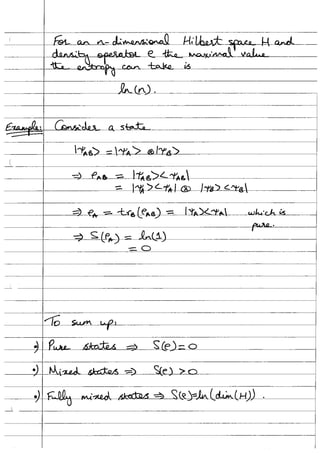 For an n-dimensional Hilbert space H and
density operator ρ the maximal value
the entropy can take is
ln(n).
Example: Consider a state
|ψ_AB> = |ψ_A> ⊗ |ψ_B>
⇒ ρ_AB = |ψ_AB><ψ_AB|
= |ψ_A><ψ_A| ⊗ |ψ_B><ψ_B|
⇒ ρ_A = tr_B(ρ_AB) = |ψ_A><ψ_A| which is
pure.
⇒ S(ρ_A) = ln(1)
= 0
To sum up:
•) Pure states ⇒ S(ρ)=0
•) Mixed states ⇒ S(ρ) > 0
•) Fully mixed states ⇒ S(ρ)=ln(dim(H)).